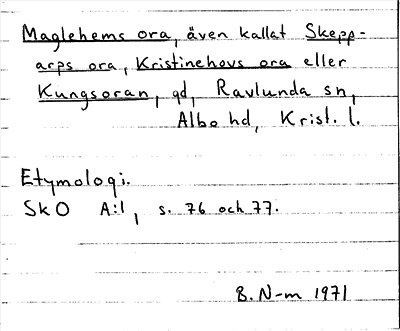 Maglehems ora, även kallat Skepp-
arps ora, Kristinehovs ora eller
Kungsoran, gd, Ravlunda sn,
Albo hd, Krist. l.
Etymologi.
SkO A:1, s. 76 och 77.
B. N-m 1971